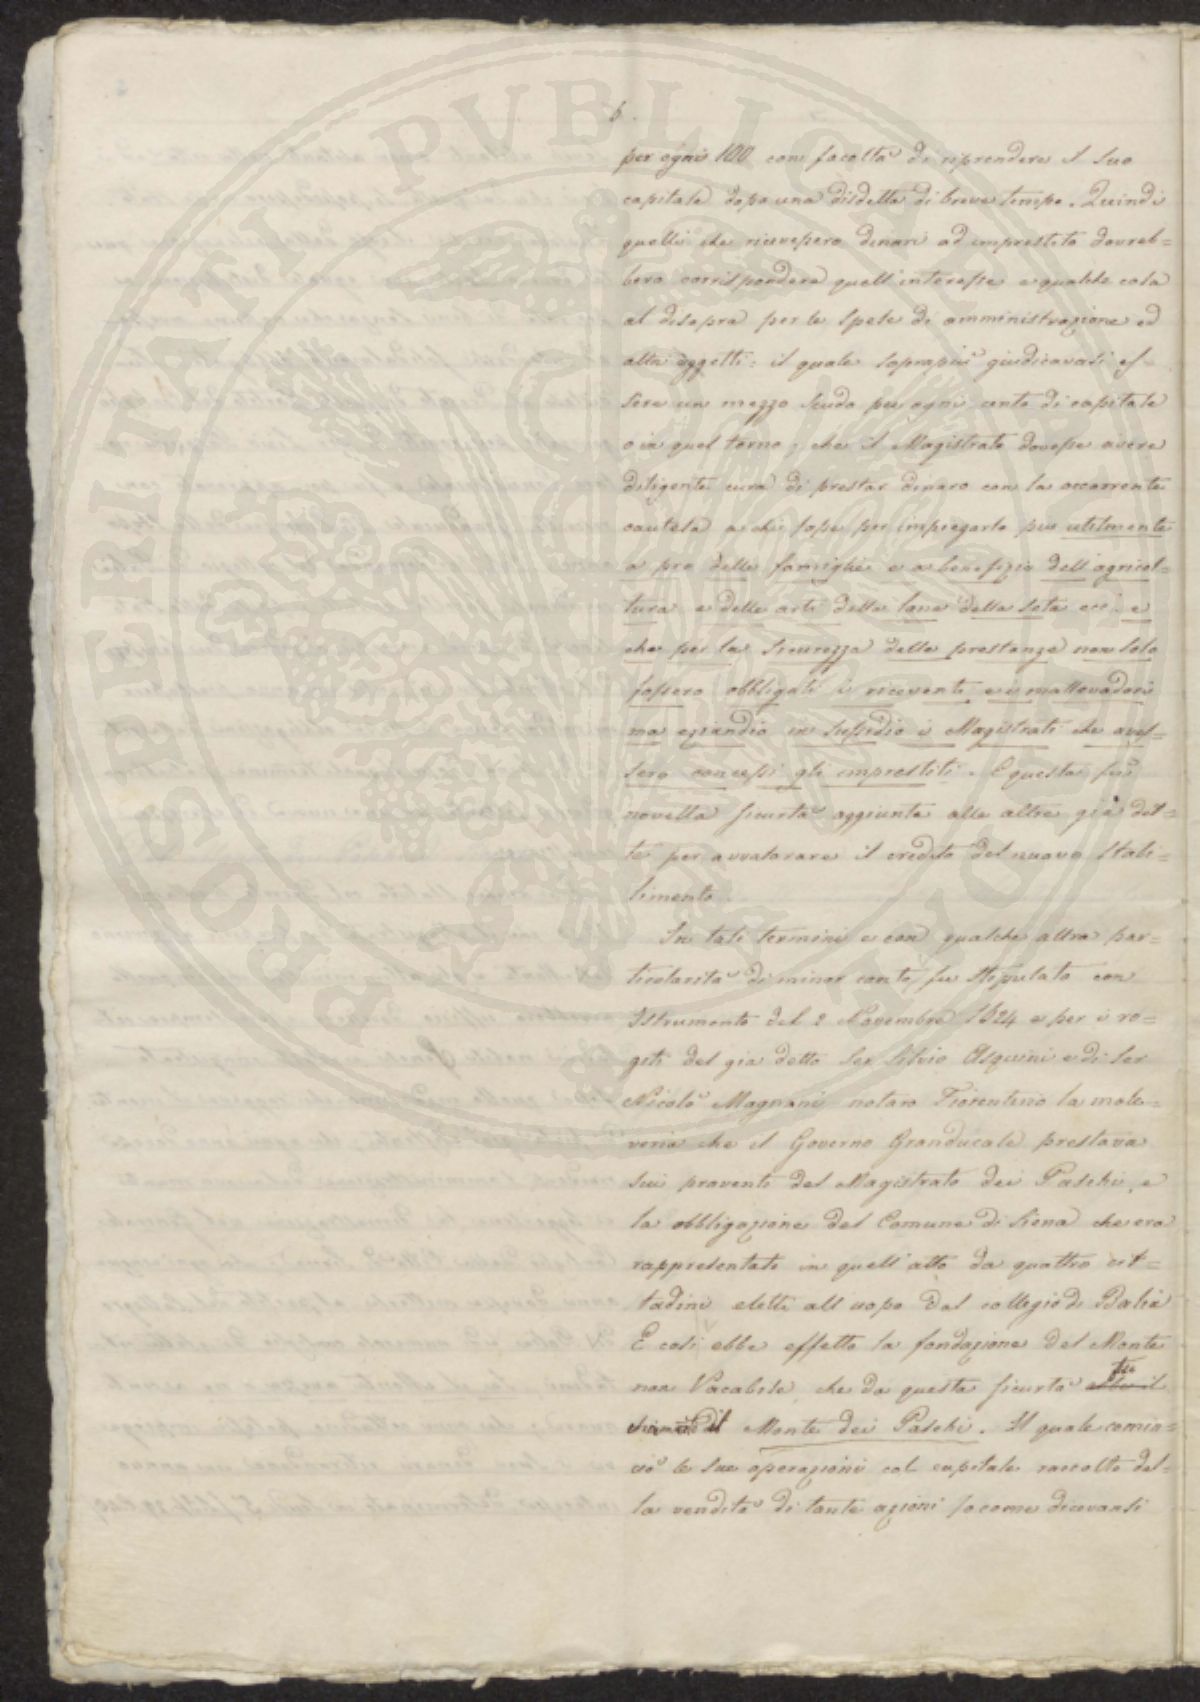 6.
per ogni 100 con facoltà di riprendere il suo
capitale dopo una disdetta di breve tempo. Quindi
quelli che ricevessero denari ad imprestito dovreb=
bero corrispondere quell'interesse e qualche cosa
al disopra per le spese di amministrazione ed
altri oggetti: il quale soprapiù giudicavasi es=
sere un mezzo scudo per ogni cento di capitale
o in quel torno; che il Magistrato dovesse avere
diligente cura di prestar denaro con la occorrente
cautela a chi fosse per impiegarlo più utilmente
a pro delle famiglie e a benefizio dell'agricol=
tura e delle arti della lana della seta ecc. e
che per la sicurezza delle prestanze non solo
fossero obbligati i riceventi e i mallevadori
ma eziandio in sussidio i Magistrati che aves=
sero concessi gli imprestiti. E questa fu
novella sicurtà aggiunta alle altre già det=
te per avvalorare il credito del nuovo Stabi=
limento.
In tali termini e con qualche altra par=
ticolarità di minor conto, fu stipulato con
Istrumento del 2 Novembre 1624 e per i ro=
giti del già detto Ser Silvio Asquini e di Ser
Nicolò Magnani notaro Fiorentino la malle=
veria che il Governo Granducale prestava
sui proventi del Magistrato dei Paschi, e
la obbligazione del Comune di Siena che era
rappresentato in quell'atto da quattro cit=
tadini eletti all'uopo dal collegio di Balia
E così ebbe effetto la fondazione del Monte
non Vacabile, che da questa sicurtà ebbe il fu
il Monte dei Paschi. Il quale comin=
ciò le sue operazioni col capitale raccolto del=
la vendita di tante azioni (o come dicevansi
PROSPERITATI PVBLICAE